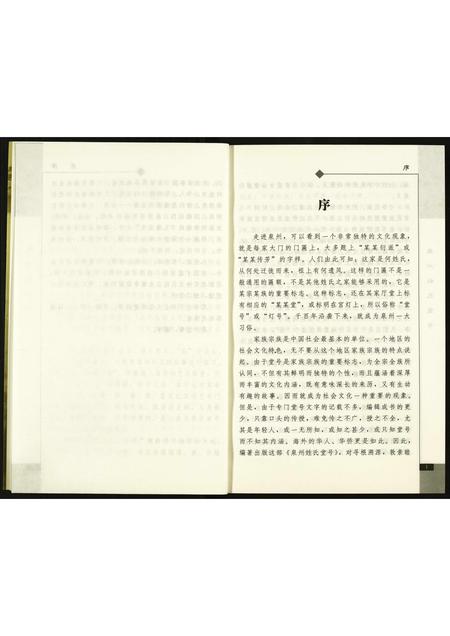 序
序
走进泉州，可以看到一个非常独特的文化现象，
就是每家大门的门匾上，大多题上“某某衍派”或
“某某传芳”的字样。人们由此可知：这家是何姓氏，
从何处迁徙而来，祖上有何遗风。这样的门匾不是一
般通用的匾额，不是其他姓氏之家能够采用的，它是
某宗某族的重要标志。这样标志，还在其家厅堂上标
有相应的“某某堂”，或标明在宫灯上，所以俗称“堂
号”或“灯号”。千百年沿袭下来，就成为泉州一大
习俗。
家族宗族是中国社会最基本的单位。一个地区的
社会文化特色，无不要从这个地区家族宗族的特点说
起。由于堂号是家族宗族的重要标志，为全宗全族所
认同，不但有其鲜明而独特的个性，而且蕴涵着深厚
而丰富的文化内涵，既有意味深长的来历，又有生动
有趣的故事。因而就成为社会文化一种重要的现象。
但是，由于专门堂号文字的记载不多，编辑成书的更
少，只靠口头的传授，难免传之不广，授之不全，尤
其是年轻人，或一无所知，或知之甚少，或只知堂号
而不知其内涵。海外的华人、华侨更是如此。因此，
编著出版这部《泉州姓氏堂号》，对寻根溯源，敦亲睦
1